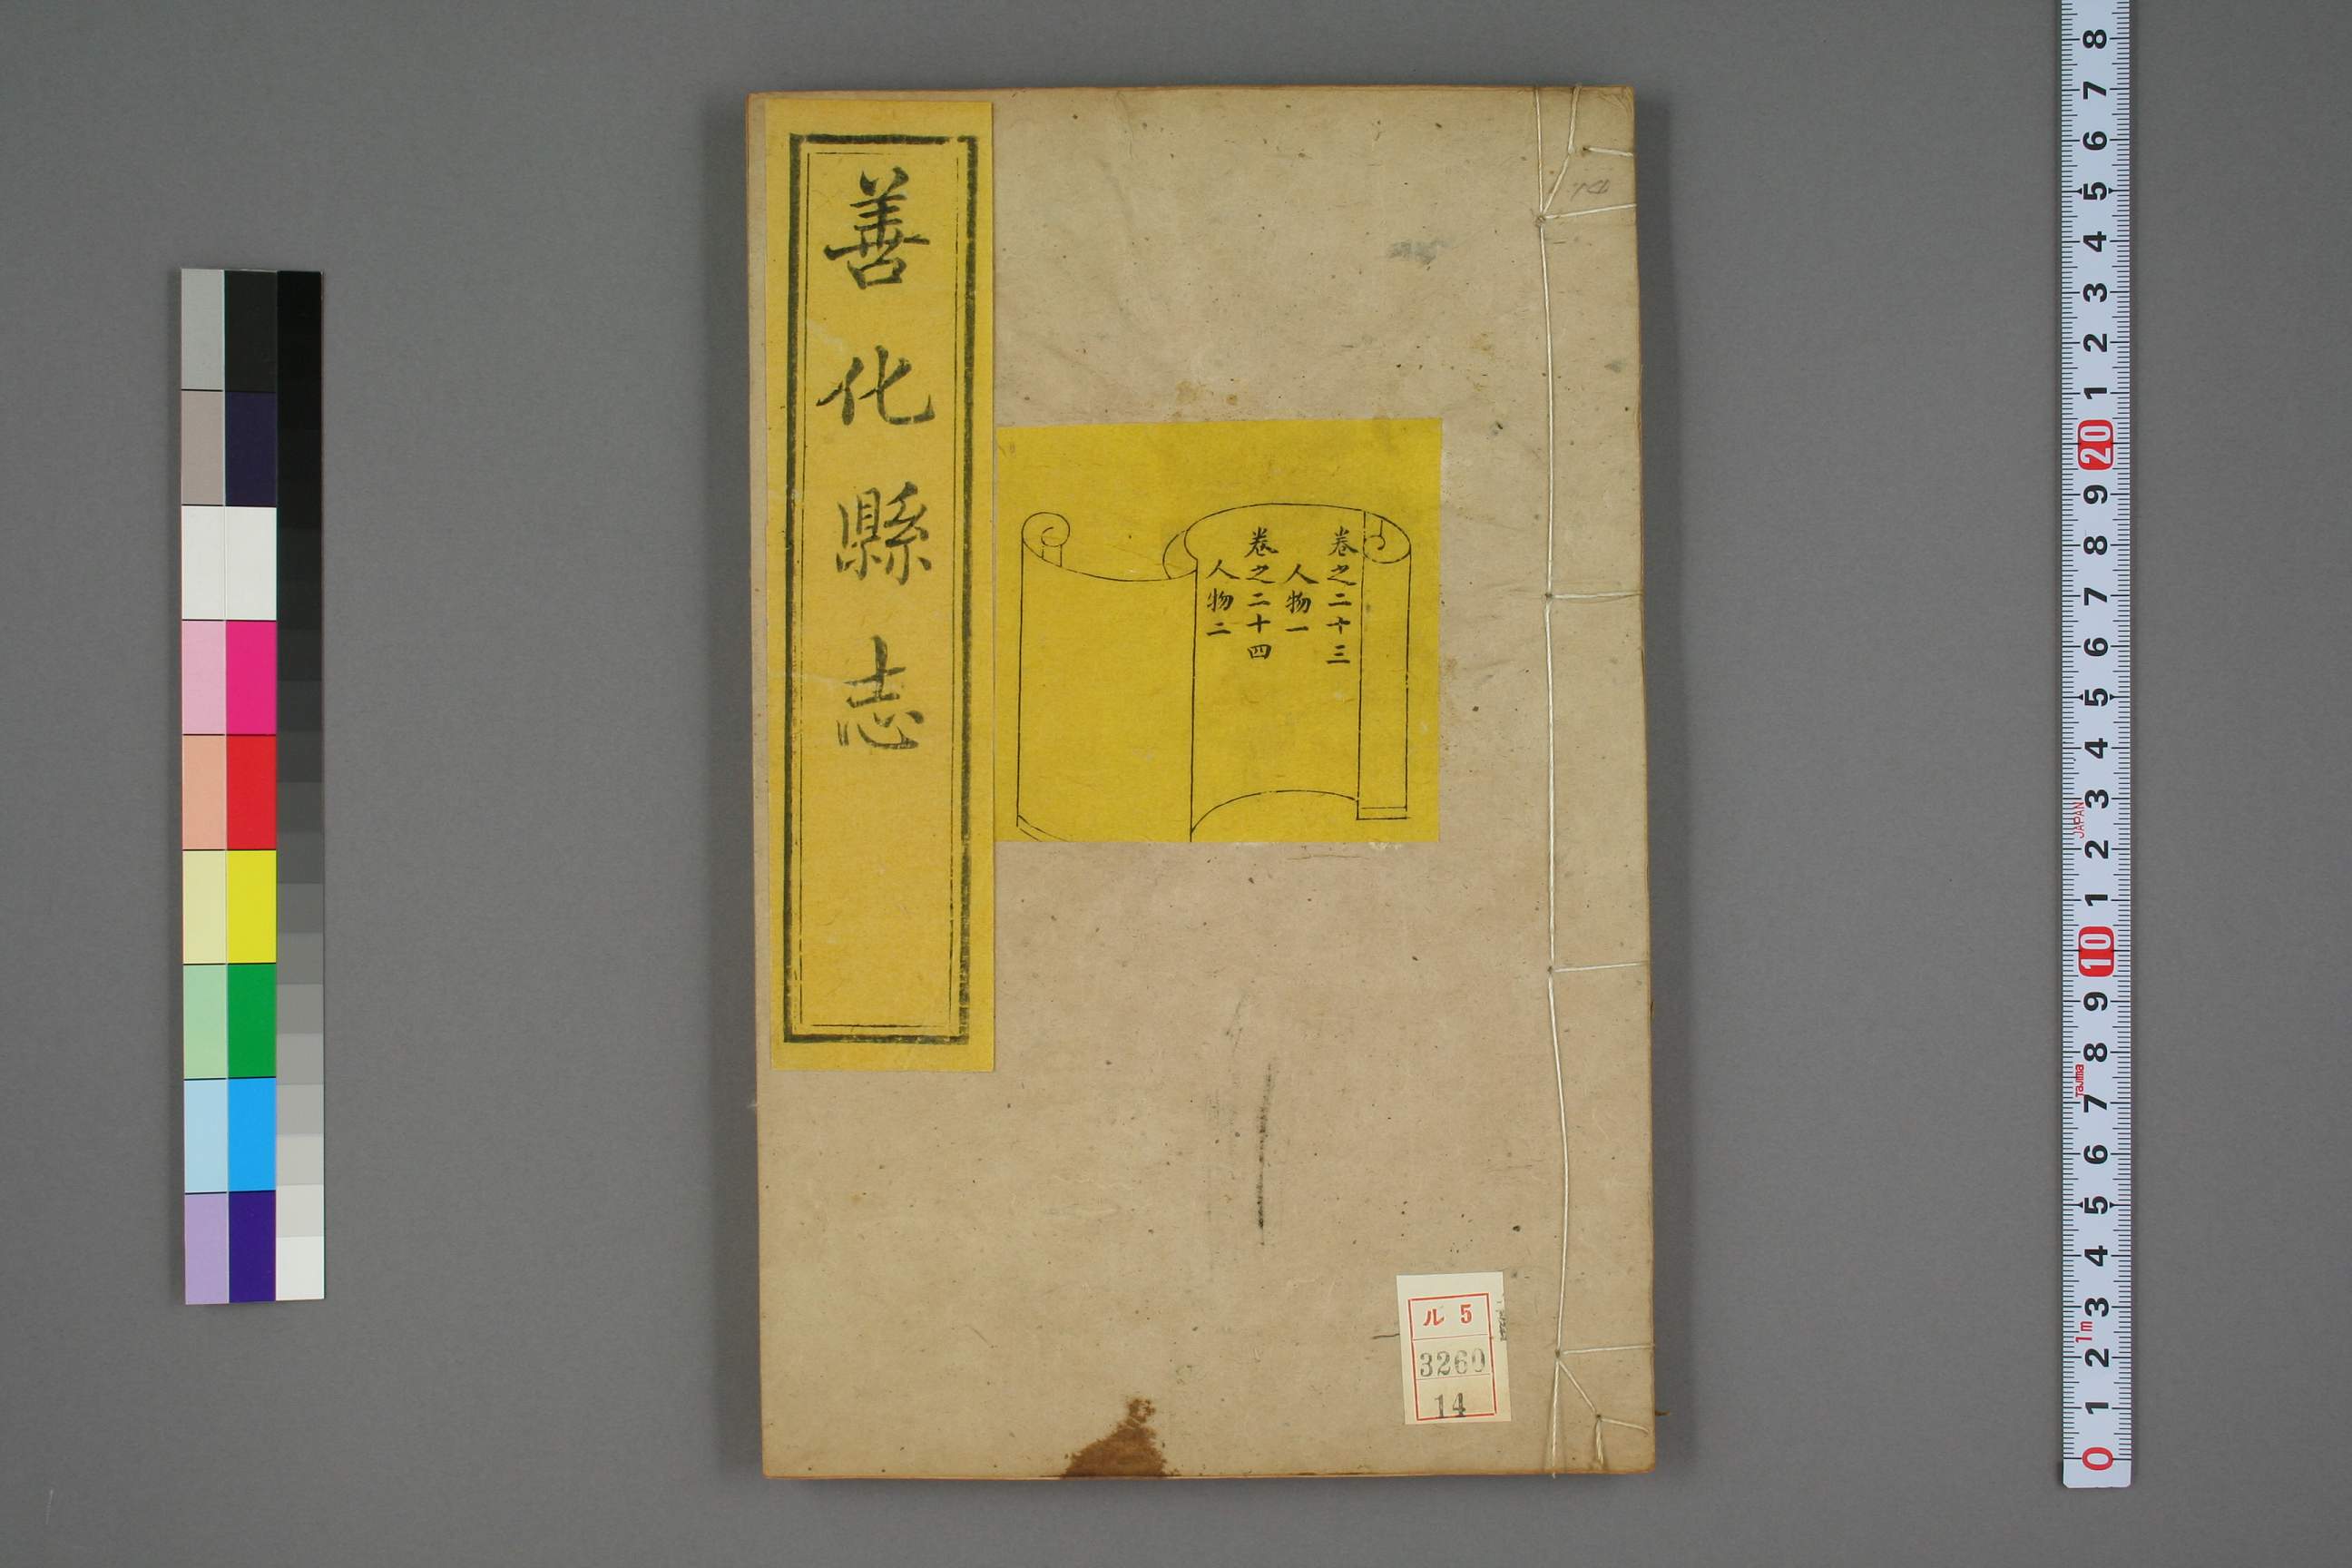 善化縣志
卷之二十三
人物一
卷之二十四
人物二
ル 5
3260
14
8
7
6
5
4
3
2
1
20
9
8
7
6
5
4
3
JAPAN
2
1
10
9
8
Tajima
7
6
5
4
3
1m
2
1
0